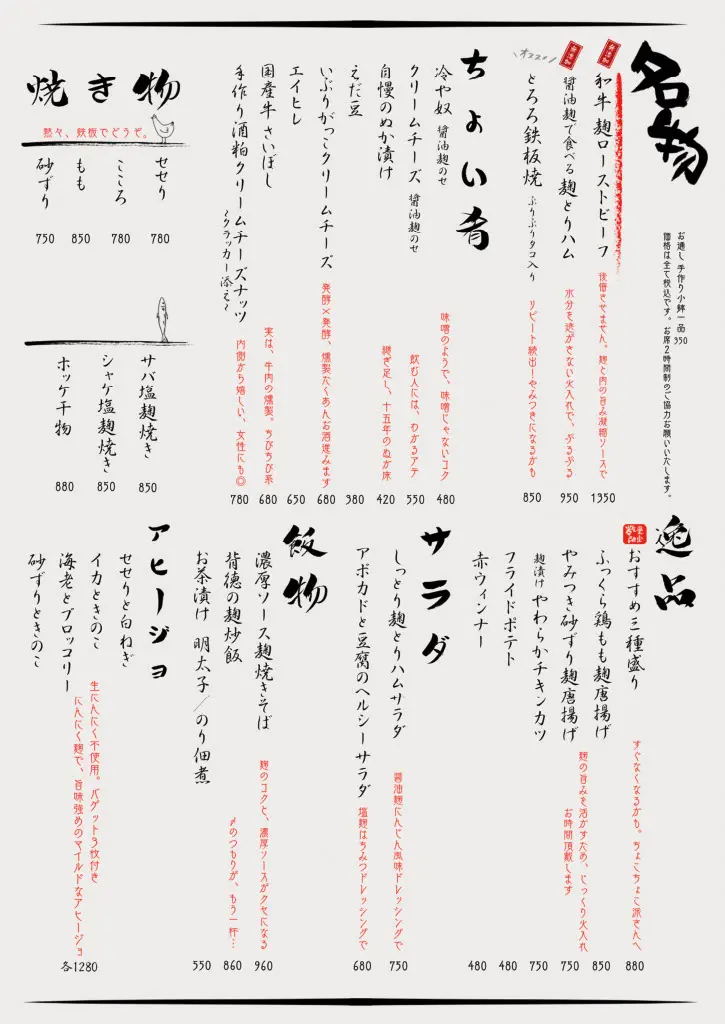 名物
お通し 手作り小鉢一品 350
価格は全て税込です。お席2時間制のご協力お願いいたします。
無添加
和牛 麹ローストビーフ
後悔させません。麹と肉の旨み凝縮ソースで
1350
無添加
醤油麹で食べる 麹とりハム
水分を逃がさない火入れで、ぷるぷる
950
オススメ!
とろろ鉄板焼 ぷりぷりタコ入り
リピート続出!やみつきになるかも
850
ちょい肴
冷や奴 醤油麹のせ
味噌のようで、味噌じゃないコク
480
クリームチーズ 醤油麹のせ
飲む人には、わかるアテ
550
自慢のぬか漬け
継ぎ足し、十五年のぬか床
420
えだ豆
380
いぶりがっこクリームチーズ
発酵×発酵、燻製たくあんお酒進みます
680
エイヒレ
650
国産牛 さいぼし
実は、牛肉の燻製。ちびちび系
680
手作り酒粕クリームチーズナッツ
〜クラッカー添え〜
内側から嬉しい、女性にも◎
780
焼き物
熱々、鉄板でどうぞ。
せせり
780
こころ
780
もも
850
砂ずり
750
サバ塩麹焼き
850
シャケ塩麹焼き
850
ホッケ干物
880
逸品
おすすめ三種盛り
すぐなくなるかも。ちょこちょこ派さんへ
880
ふっくら鶏もも麹唐揚げ
850
やみつき砂ずり麹唐揚げ
麹の旨みを活かすため、じっくり火入れ
お時間頂戴します
750
麹漬け やわらかチキンカツ
750
フライドポテト
480
赤ウィンナー
480
サラダ
しっとり麹とりハムサラダ
醤油麹にんじん風味ドレッシングで
750
アボカドと豆腐のヘルシーサラダ
塩麹はちみつドレッシングで
680
飯物
濃厚ソース麹焼きそば
麹のコクと、濃厚ソースがクセになる
960
背徳の麹炒飯
〆のつもりが、もう一杯…
860
お茶漬け 明太子/のり佃煮
550
アヒージョ
せせりと白ねぎ
イカときのこ
海老とブロッコリー
砂ずりときのこ
生にんにく不使用。バゲット3枚付き
にんにく麹で、旨味強めのマイルドなアヒージョ
各1280